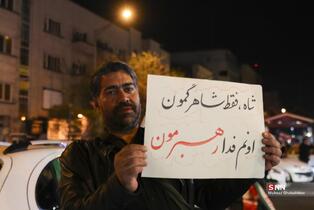 شاه ، فقط شاهرگمون
اونم فدا رهبرمون
SNN